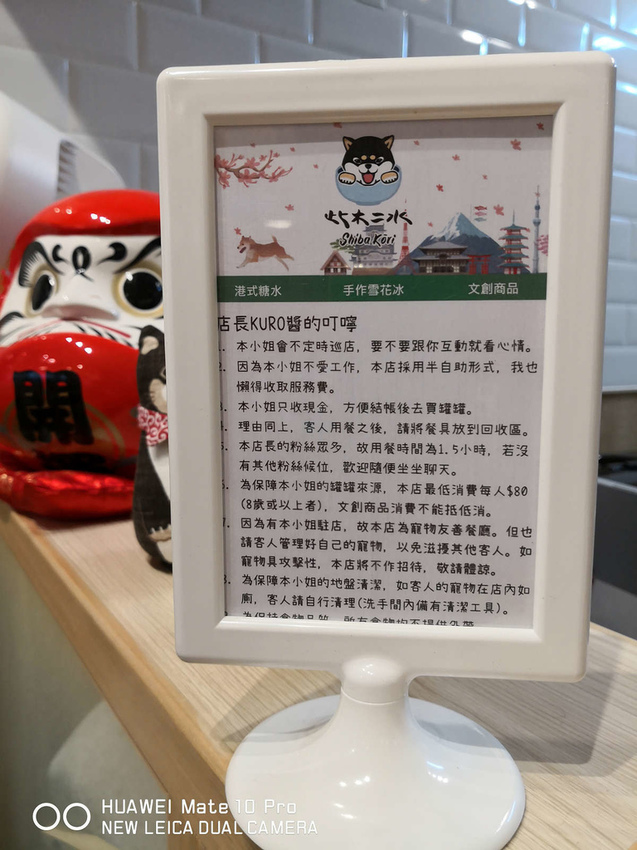 柴木二水
Shiba Kōri
港式糖水 手作雪花冰 文創商品
店長KURO醬的叮嚀
1. 本小姐會不定時巡店，要不要跟你互動就看心情。
2. 因為本小姐不受工作，本店採用半自助形式，我也
懶得收取服務費。
3. 本小姐只收現金，方便結帳後去買罐罐。
4. 理由同上，客人用餐之後，請將餐具放到回收區。
5. 本店長的粉絲眾多，故用餐時間為1.5小時，若沒
有其他粉絲候位，歡迎隨便坐坐聊天。
6. 為保障本小姐的罐罐來源，本店最低消費每人$80
(8歲或以上者)，文創商品消費不能抵低消。
7. 因為有本小姐駐店，故本店為寵物友善餐廳。但也
請客人管理好自己的寵物，以免滋擾其他客人。如
寵物具攻擊性，本店將不作招待，敬請體諒。
8. 為保障本小姐的地盤清潔，如客人的寵物在店內如
廁，客人請自行清理(洗手間內備有清潔工具)。
開
HUAWEI Mate 10 Pro
NEW LEICA DUAL CAMERA